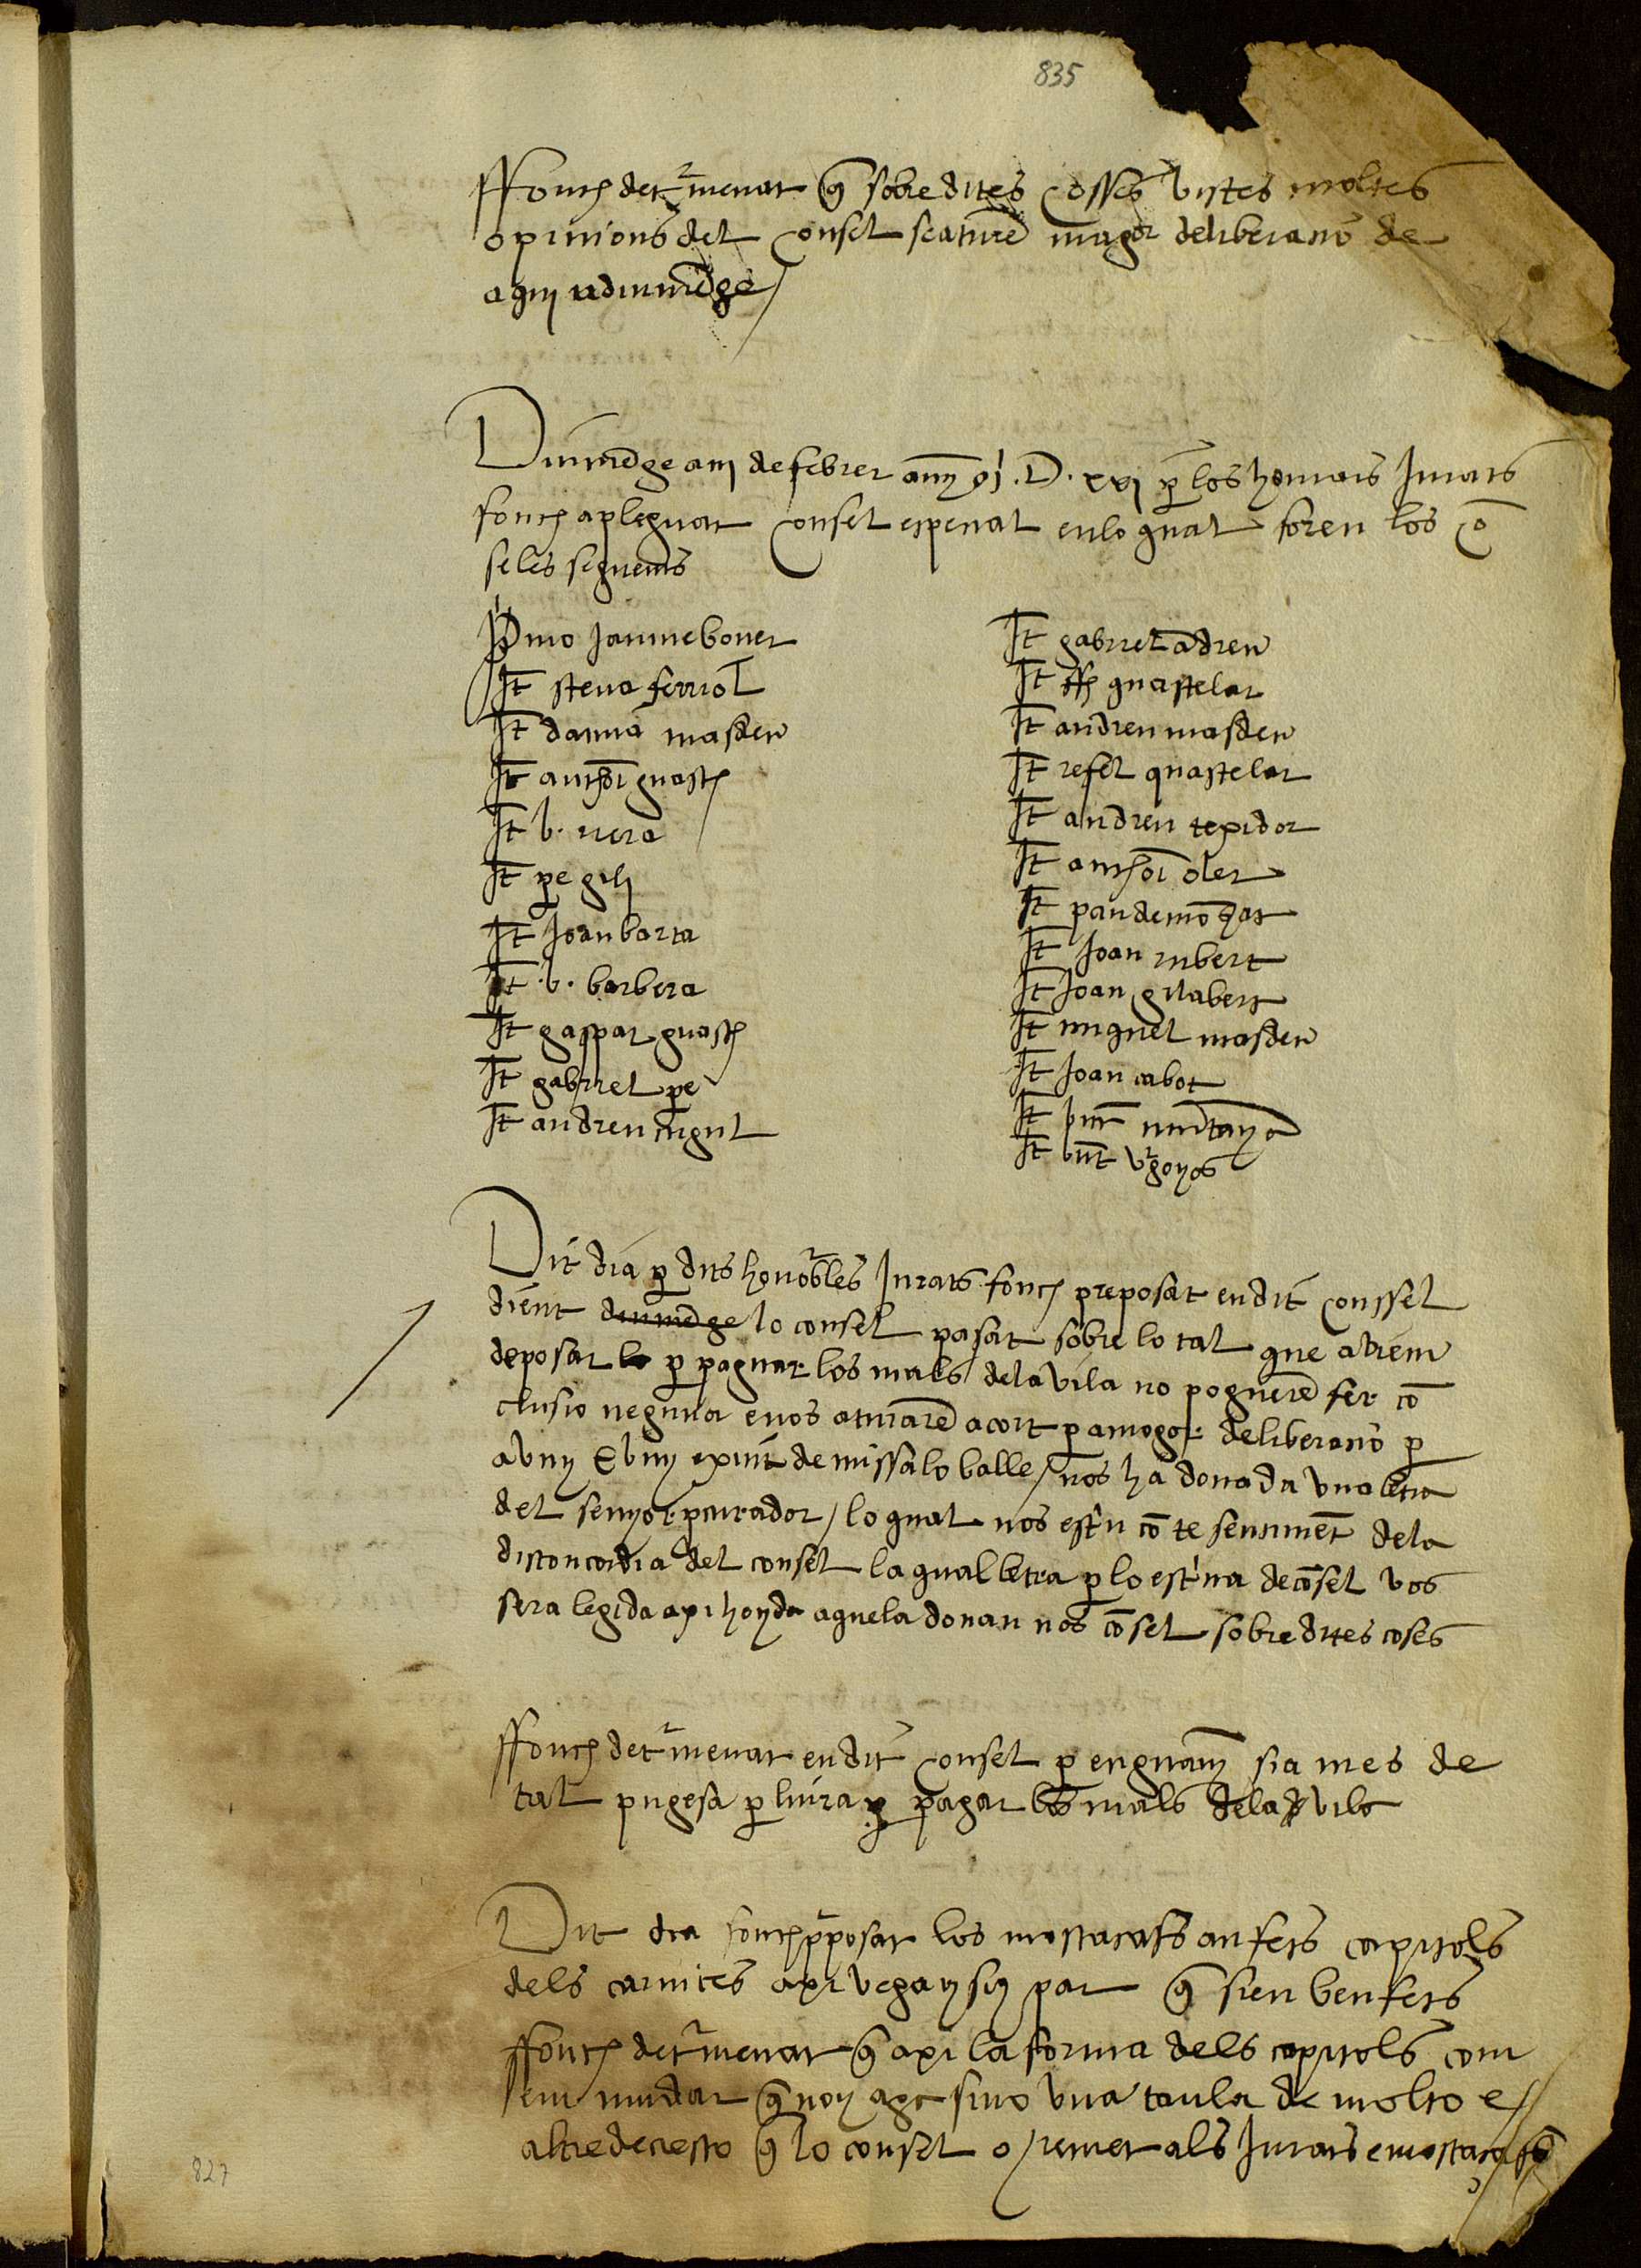 835
ffonch det'menat q̄ sobredites cosses vistes moltes
opinions del consel seature magor deliberacio de
aquj a diumēge /
Diumēge a iiij de febrer anny Mj . D . xvj p̱ los honrats Jurats
fonch aplegat consel espenal en lo qual foren los cō
seles seguens
Pº mo Jaume bover
It steva ferriol
It damia masdeu
It anthoi guasch
It b. nera
It p̱e gili
It Joan barta
It .b. barbera
It gaspar guasch
It gabriel p̱e
It andreu cugul
It gabriel adreu
It ffh guastelar
It andreu masdeu
It refel quastelar
It andreu texidor
It anthoi oler
It pau de mōçor
It Joan rubert
It Joan gilabert
It miquel masdeu
It Joan cabot
It bnt mūtayā
It bnt v'goyos
Dit dia p̱ dits honorbles Jurats fonch preposat en dit conssel
dient diumēge lo consel pasat sobre lo tal que aviem
deposar lo p̱ pagar los mals de la vila no pogueré fer cō
clusio neguna e nos aturaré acort p̱ a mogor deliberacio p̱
avuy E vuy exint de missa lo balle / nos ha donada una letra
del senyor p̱curador / lo qual nos estiu cō te sentiment de la
discorcordia del consel la qual letra p̱ lo estiva de cōsel vos
sera legida axi hoyda aquela donau nos cōsel sobre dites coses
ffonch det'menat en dit consel p̱ enguany sia mes de
tal pugesa p̱ liura p̱ pagar los mals de la vila
Dit dia fonch p̱posat los mostacafs an fets capitols
dels carnices axi vegau sius par q̄ sien ben fets
ffonch det'menat q̄ axi la forma dels capitols com
em mudar q̄ noy age sino una taula de molto e //
altre de cresto q̄ lo consel o remet als Jurats e mostacafs
827